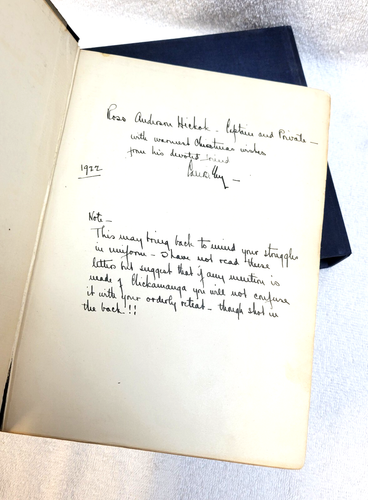 Ross Anderson Hickok - Captain and Private -
with warmest Christmas wishes
from his devoted friend
1922
Note -
This may bring back to mind your struggles
in uniform - I have not read these
letters but suggest that if any mention is
made of Chickamauga you will not confuse
it with your orderly retreat - though shot in
the back!!